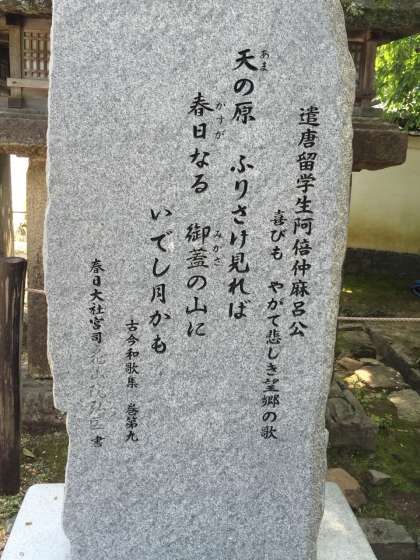 遣唐留学生阿倍仲麻呂公
喜びも やがて悲しき望郷の歌
天の原 ふりさけ見れば
春日なる 御蓋の山に
いでし月かも
古今和歌集 巻第九
春日大社宮司 花山院弘匡 書
あま
かすが
みかさ